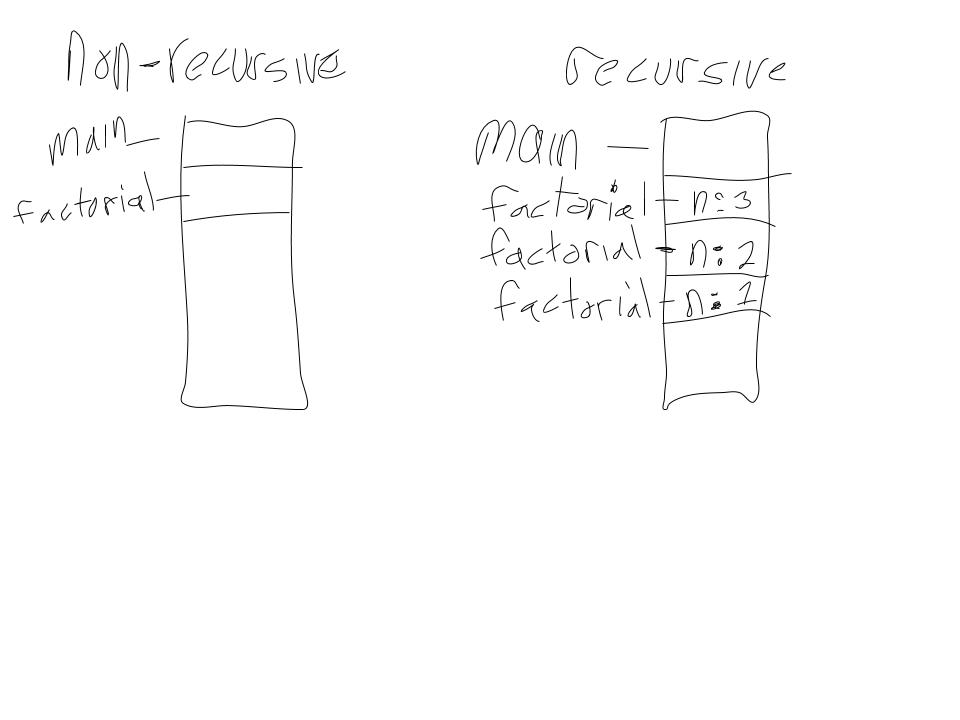 non-recursive
main
factorial
recursive
main
factorial n: 3
factorial n: 2
factorial n: 1